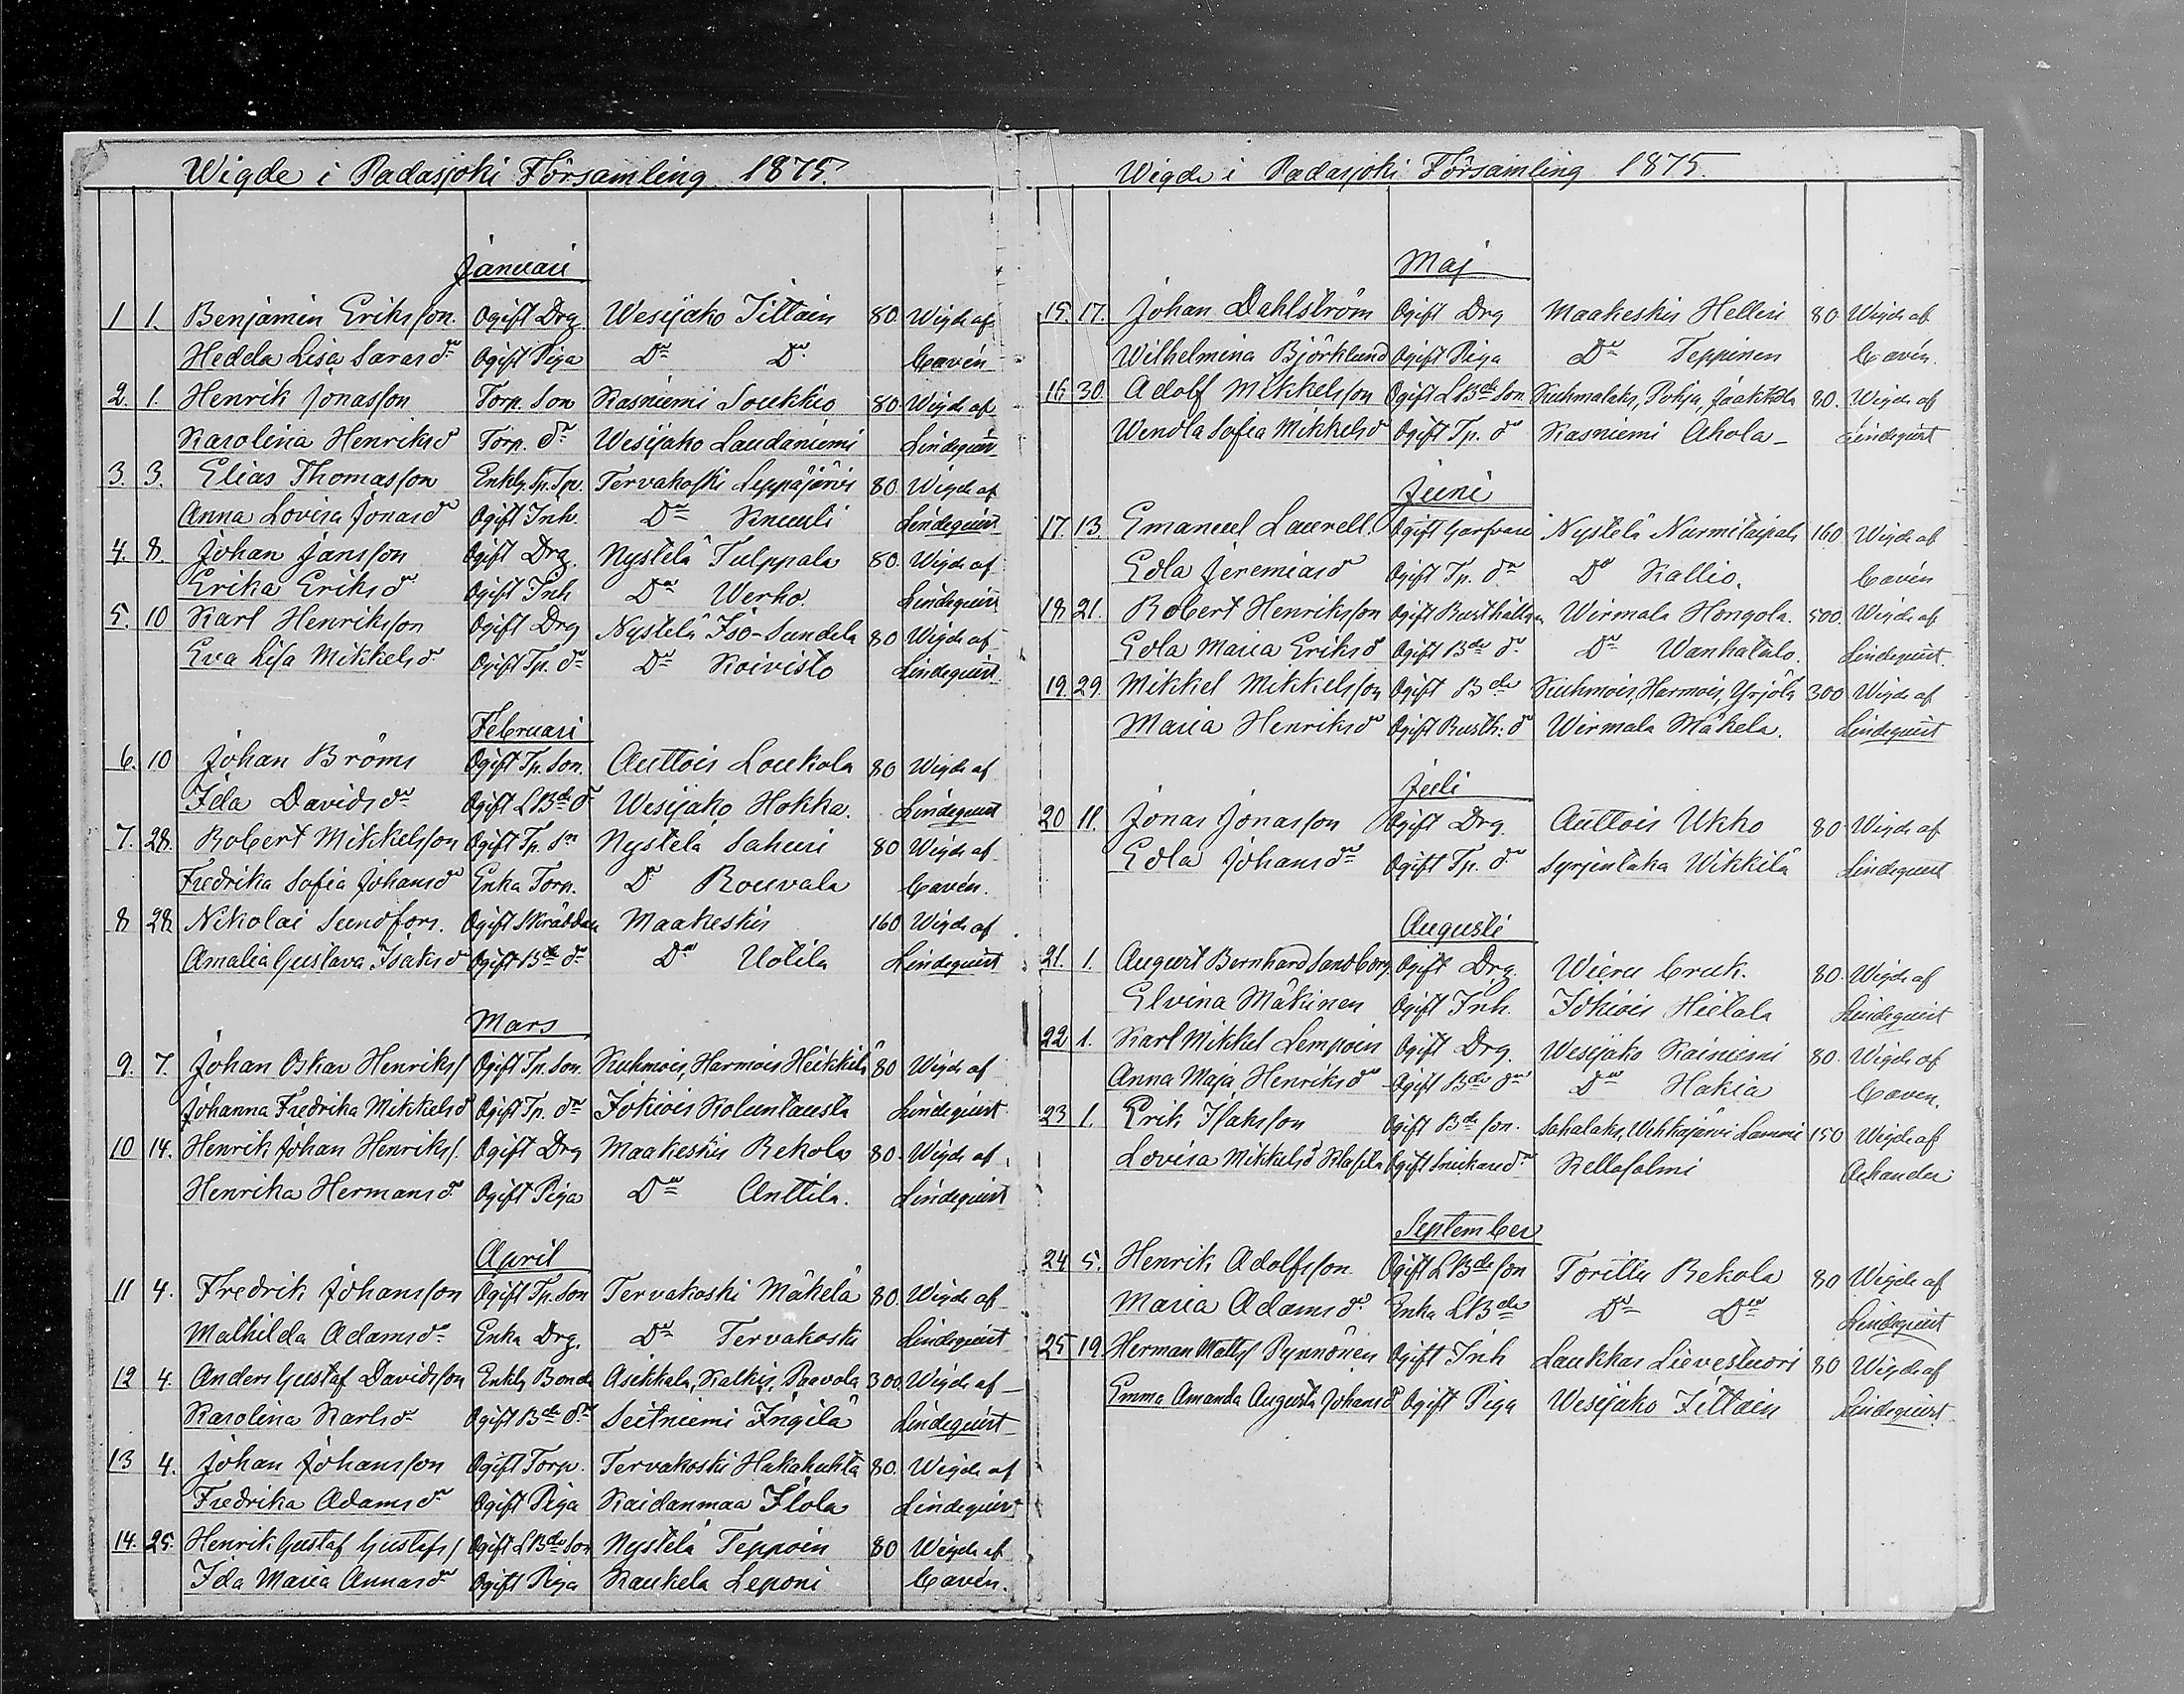 Wigde i Padasjoki Församling 1875.
Januari
1 1. Benjamin Eriksson. Ogift Drg Wesijako Tittoin 80 Wigde af
Hedda Lisa Sarasdr Ogift Piga Do Do Cavén
2. 1. Henrik Jonasson Torp. Son Kasniemi Soukkio 80 Wigde af
Karolina Henriksd Torp. dr Wesijako Laudaniemi Lindequist
3. 3. Elias Thomasson Enklg Sp. Tp. Tervakoski Leppäjärvi 80 Wigde af
Anna Lovisa Jonasd Ogift Inh. Do Knuuti Lindequist
4. 8. Johan Jansson Ogift Drg. Nystelä Tulppala 80. Wigde af
Erika Eriksd Ogift Inh Do Werho. Lindequist
5. 10 Karl Henriksson Ogift Drg Nystelä Iso-Sundela 80 Wigde af
Eva Lisa Mikkelsd Ogift Tp. dr Do Koivisto Lindequist
Februari
6. 10 Johan Bröms Ogift Tp. Son. Auttois Loukola 80 Wigde af
Ida Davidsdr Ogift LBde dr Wesijako Hokka. Lindequist
7. 28. Robert Mikkelsson Ogift Tp. Sn Nystelä Sahuri 80 Wigde af
Fredrika Sofia Johansd Enka Torp. Do Rouvala Cavén.
8 28 Nikolai Sundfors. Ogift Skräddare Maakeskis 160 Wigde af
Amalia Gustava Isaksd Ogift Bde dr Do Uotila Lindequist
Mars
9. 7. Johan Oskar Henriks/ Ogift Tp. Son. Kuhmois, Harmois Heikkilä 80 Wigde af
Johanna Fredrika Mikkelsd Ogift Tp. dr Jokiois Koluntausta Lindequist
10 14. Henrik Johan Henriks/. Ogift Drg Maakeskis Rekola 80. Wigde af
Henrika Hermansd. Ogift Piga Do Anttila. Lindequist
April
11 4. Fredrik Johansson Ogift Tp. Son Tervakoski Mäkelä 80. Wigde af
Mathilda Adamsdr Enka Drg. Do Tervakoski Lindequist
12 4. Anders Gustaf Davidsson Enklg Bonde Asikkala, Kalkis, Paavola 300. Wigde af
Karolina Karlsdr Ogift Bde dr Seitniemi Ingilä Lindequist
13 4. Johan Johansson Ogift Torp. Tervakoski Hakahuhta 80. Wigde af
Fredrika Adamsdr Ogift Piga Kaidanmaa Ilola Lindequist
14. 25. Henrik Gustaf Gustafs/ Ogift LBde Son Nystelä Teppoin 80 Wigde af
Ida Maria Annasdr Ogift Piga Kaukela Leponi Cavén.
Wigde i Padasjoki Församling 1875.
Maj
15. 17. Johan Dahlström Ogift Drg Maakeskis Helleri 80 Wigde af
Wilhelmina Björklund Ogift Piga Do Teppinen Cavén.
16 30. Adolf Mikkelsson Ogift LBde Son Kuhmalaks, Pohja, Jaakkola 80. Wigde af
Wendla Sofia Mikkelsd Ogift Tp. dr Kasniemi Ahola Lindequist
Juni
17. 13. Emanuel Laurell. Ogift Garfvare Nystelä Nurmitaipale 160 Wigde af
Edla Jeremiasd Ogift Tp. dr Do Kallio. Cavén
18 21. Robert Henriksson Ogift Rusthållare Wirmala Hongola. 500. Wigde af
Edla Maria Eriksd Ogift Bde dr Do Wanhatalo. Lindequist.
19. 29. Mikkel Mikkelsson Ogift Bde Kuhmois, Harmois, Yrjölä 300 Wigde af
Maria Henriksdr Ogift Rusth: dr Wirmala Mäkela. Lindequist
Juli
20 11. Jonas Jonasson Ogift Drg. Auttois Ukko 80 Wigde af
Edla Johansdr Ogift Tp. dr Syrjintaka Wikkilä Lindequist
Augusti
21. 1. August Bernhard Sandberg. Ogift Drg. Wieru bruk. 80. Wigde af
Elvina Mäkinen Ogift Inh. Jokiois Hietala Lindequist
22 1. Karl Mikkel Lempoin Ogift Drg. Wesijako Kainiemi 80. Wigde af
Anna Maja Henriksdr Ogift Bde dr Do Hakia Caven.
23 1. Erik Isaksson Ogift Bde son. Sahalaks, Wehkajärvi Lammi 150 Wigde af
Lovisa Mikkelsd Ogift Snickare dr Kellosalmi
September
24 5. Henrik Adolfsson. Ogift LBde son Toritty Rekola 80 Wigde af
Maria Adamsdr Enka LBde Do Do Lindequist
25 19. Herman Matts/ Pynnönen Ogift Inh Laukkas Lievestuori 80 Wigde af
Emma Amanda Augusta Johansd Ogift Piga Wesijako Tittoin Lindequist